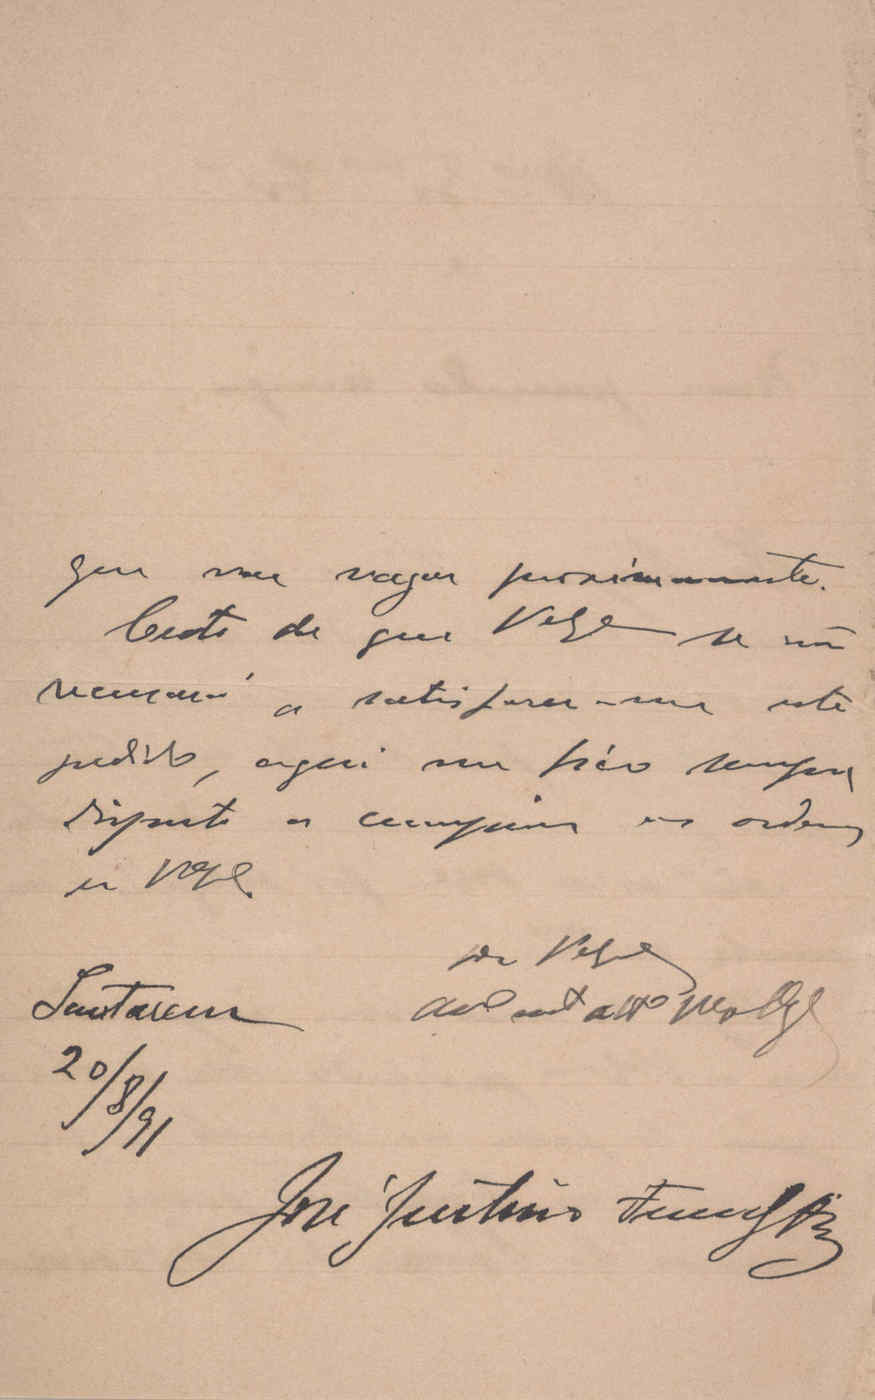 que vae vagar proximamente.
Certo de que V Ex.ª se não
recusará a satisfazer-me este
pedido, aqui me fico sempre
disposto a cumprir as ordens
de V Ex.ª
De V Ex.ª
Santarem
am.º att.º
20/8/91
José Justino